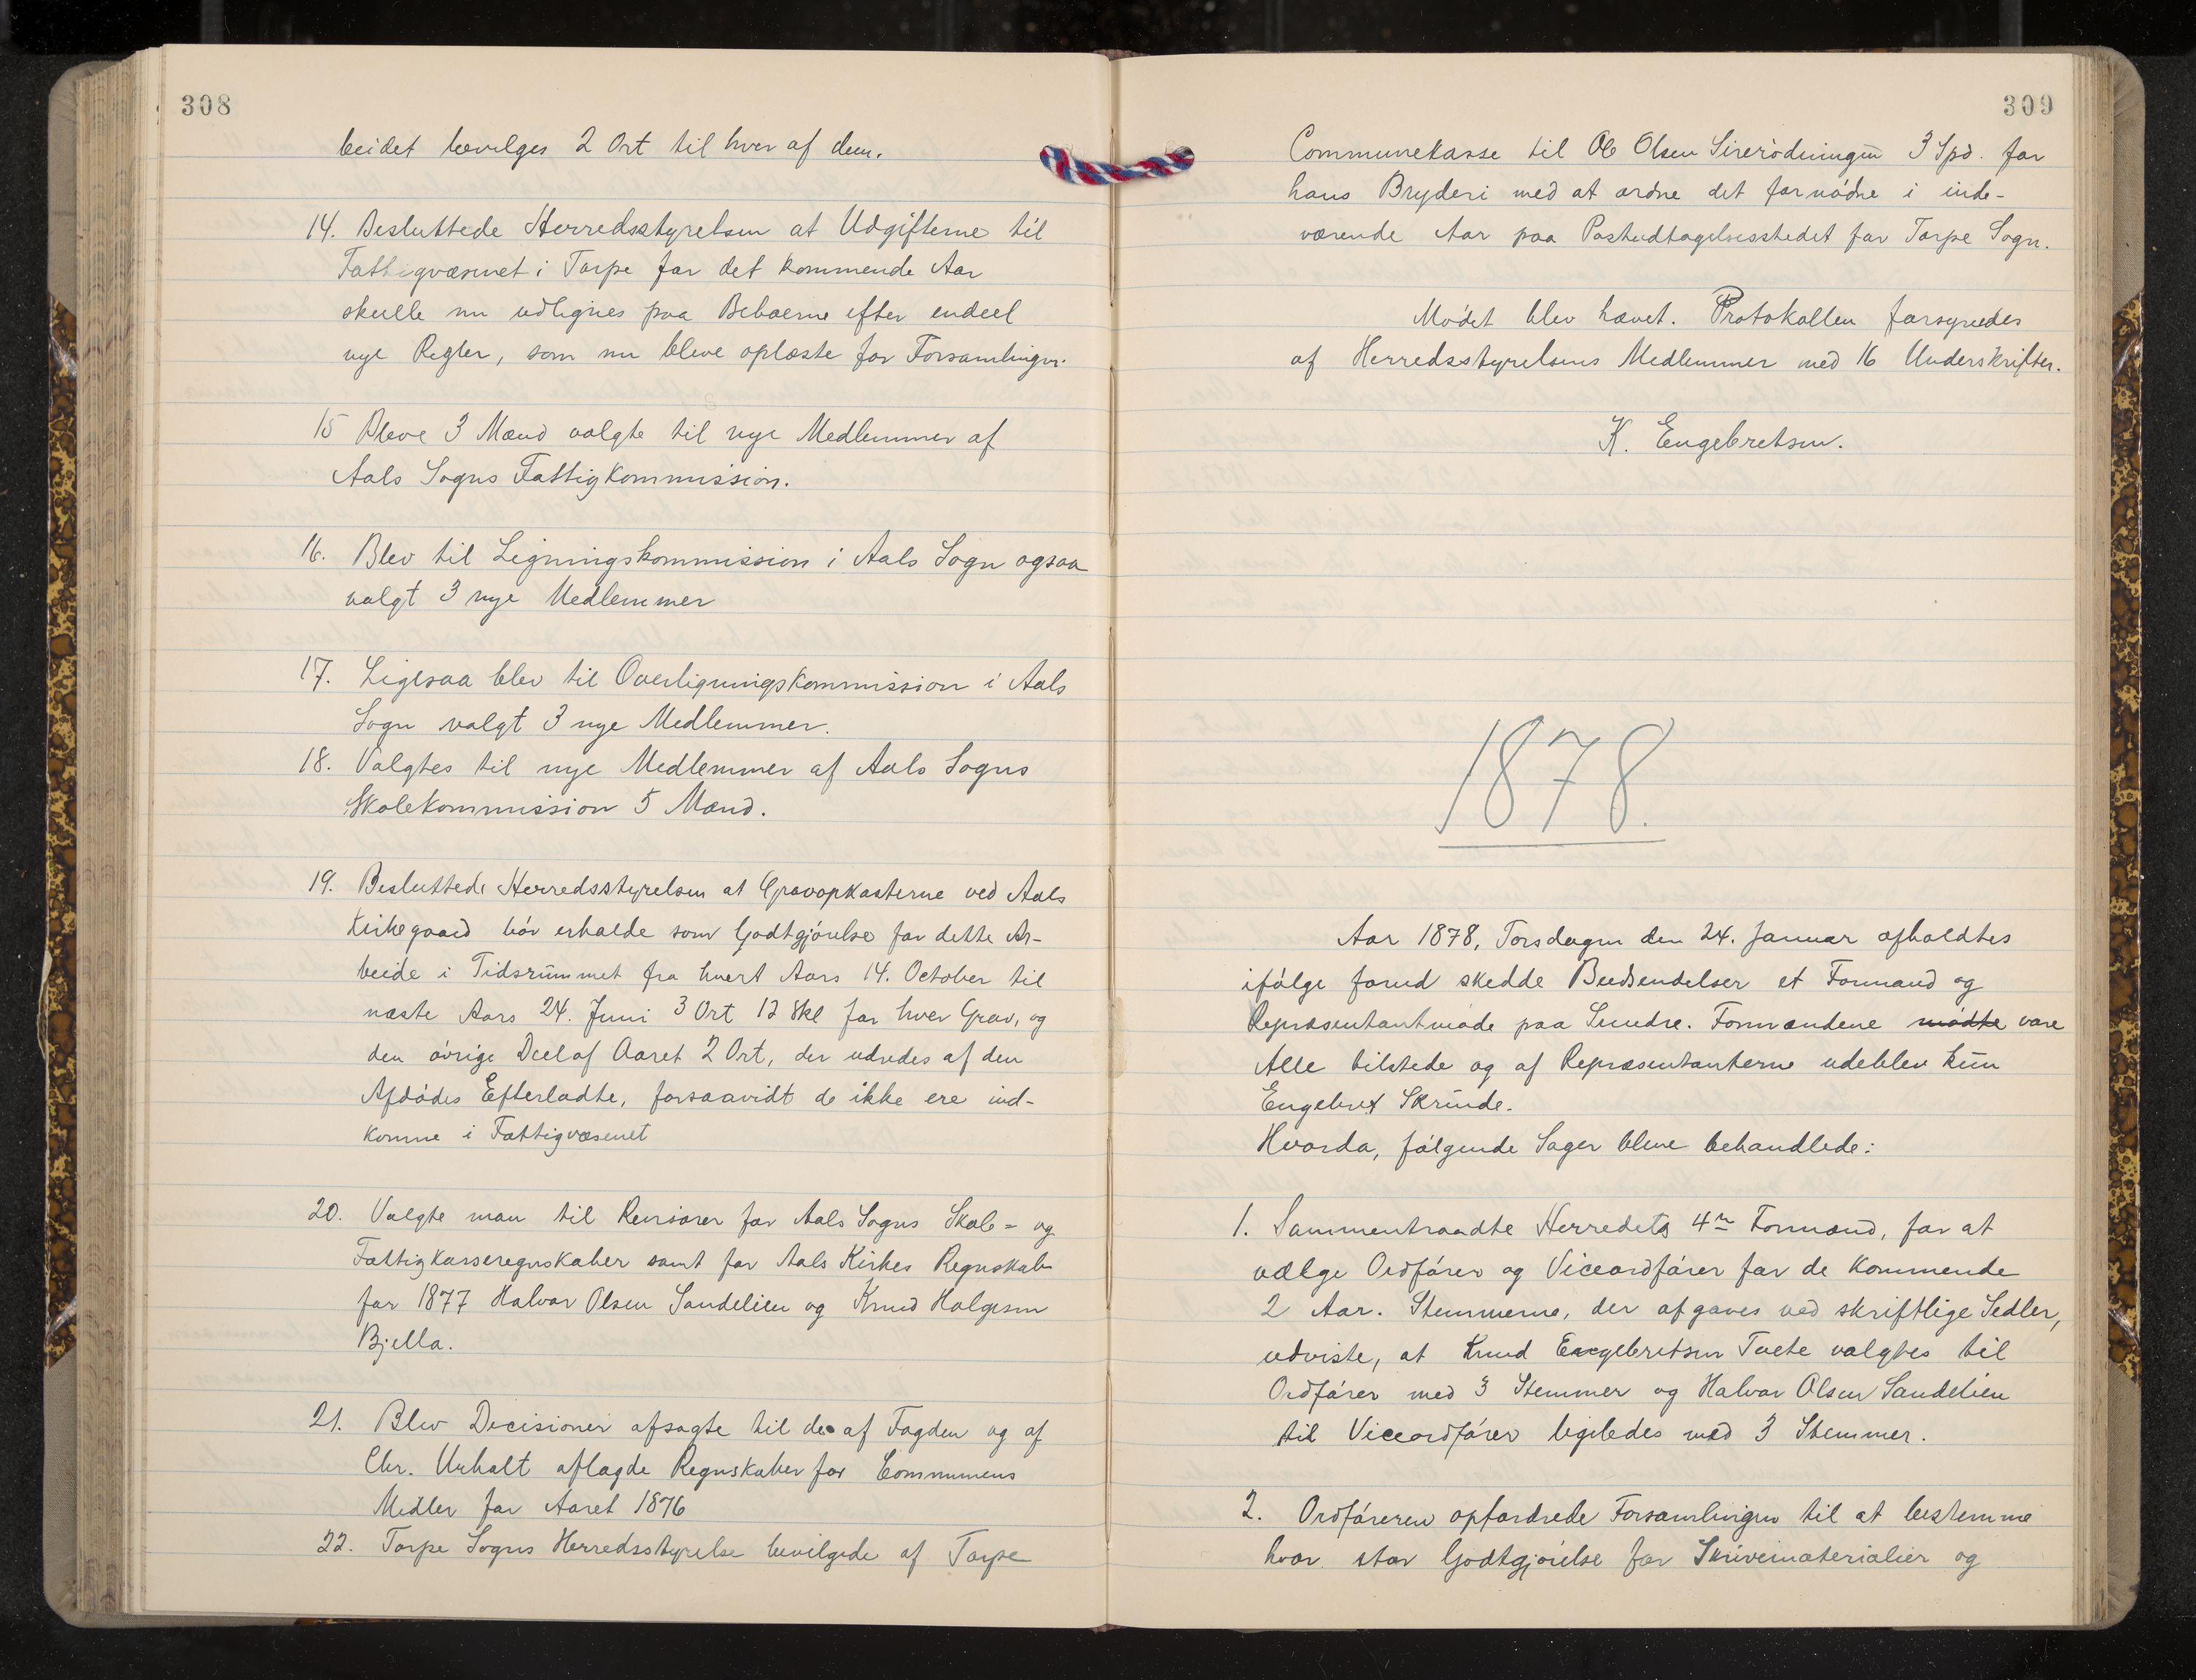 308
beidet bevilges 2 Ort til hver af dem.
14. Besluttede Herredsstyrelsen at Udgifterne til
Fattigvæsenet i Torpe for det kommende Aar
skulle nu udlignes paa Beboerne efter endeel
nye Regler, som nu bleve oplæste for Forsamlingen.
15 Bleve 3 Mænd valgte til nye Medlemmer af
Aals Sogns Fattigkommission.
16. Blev til Ligningskommission i Aals Sogn ogsaa
valgt 3 nye Medlemmer
17. Ligesaa blev til Overligningskommission i Aals
Sogn valgt 3 nye Medlemmer.
18. Valgtes til nye Medlemmer af Aals Sogns
Skolekommission 5 Mænd.
19. Besluttede Herredsstyrelsen at Gravopkasterne ved Aals
Kirkegaard bör erholde som Godtgjörelse for dette Ar-
beide i Tidsrummet fra hvert Aars 14. October til
næste Aars 24. Juni 3 Ort 12 Skl for hver Grav, og
den övrige Deel af Aaret 2 Ort, der udredes af den
Afdödes Efterladte, forsaavidt de ikke ere ind-
komne i Fattigvæsenet
20. Valgte man til Revisorer for Aals Sogns Skole- og
Fattigkasseregnskaber samt for Aals Kirkes Regnskab
for 1877 Halvor Olsen Sandelien og Knud Holgesen
Bjella.
21. Blev Decisioner afsagte til de af Fogden og af
Chr. aflagde Regnskaber for Communens
Midler for Aaret 1876
22. Torpe Sogns Herredsstyrelse bevilgede af Torpe
309
Communekasse til Ole Olsen 3 Spd. for
hans Bryderi med at ordne det fornödne i inde-
værende Aar paa Postudtagelsesstedet for Torpe Sogn.
Mödet blev hævet. Protokollen forsynedes
af Herredsstyrelsens Medlemmer med 16 Underskrifter.
K. Engebretsen.
1878.
Aar 1878, Torsdagen den 24. Januar afholdtes
ifölge forud skedde Budsendelser et Formand og
Repræsentantmöde paa Sundre. Formændene mödte vare
Alle tilstede og af Repræsentanterne udeblev kun
Engebret Skrinde.
Hvorda, fölgende Sager bleve behandlede:
1. Sammentraadte Herredets 4re Formænd, for at
vælge Ordförer og Viceordförer for de kommende
2 Aar. Stemmerne, der afgaves ved skriftlige Sedler,
udviste, at Knud Engebretsen Tveto valgtes til
Ordförer med 3 Stemmer og Halvor Olsen Sandelien
til Viceordförer ligeledes med 3 Stemmer.
2. Ordföreren opfordrede Forsamlingen til at bestemme
hvor stor Godtgjörelse for Skrivematerialier og